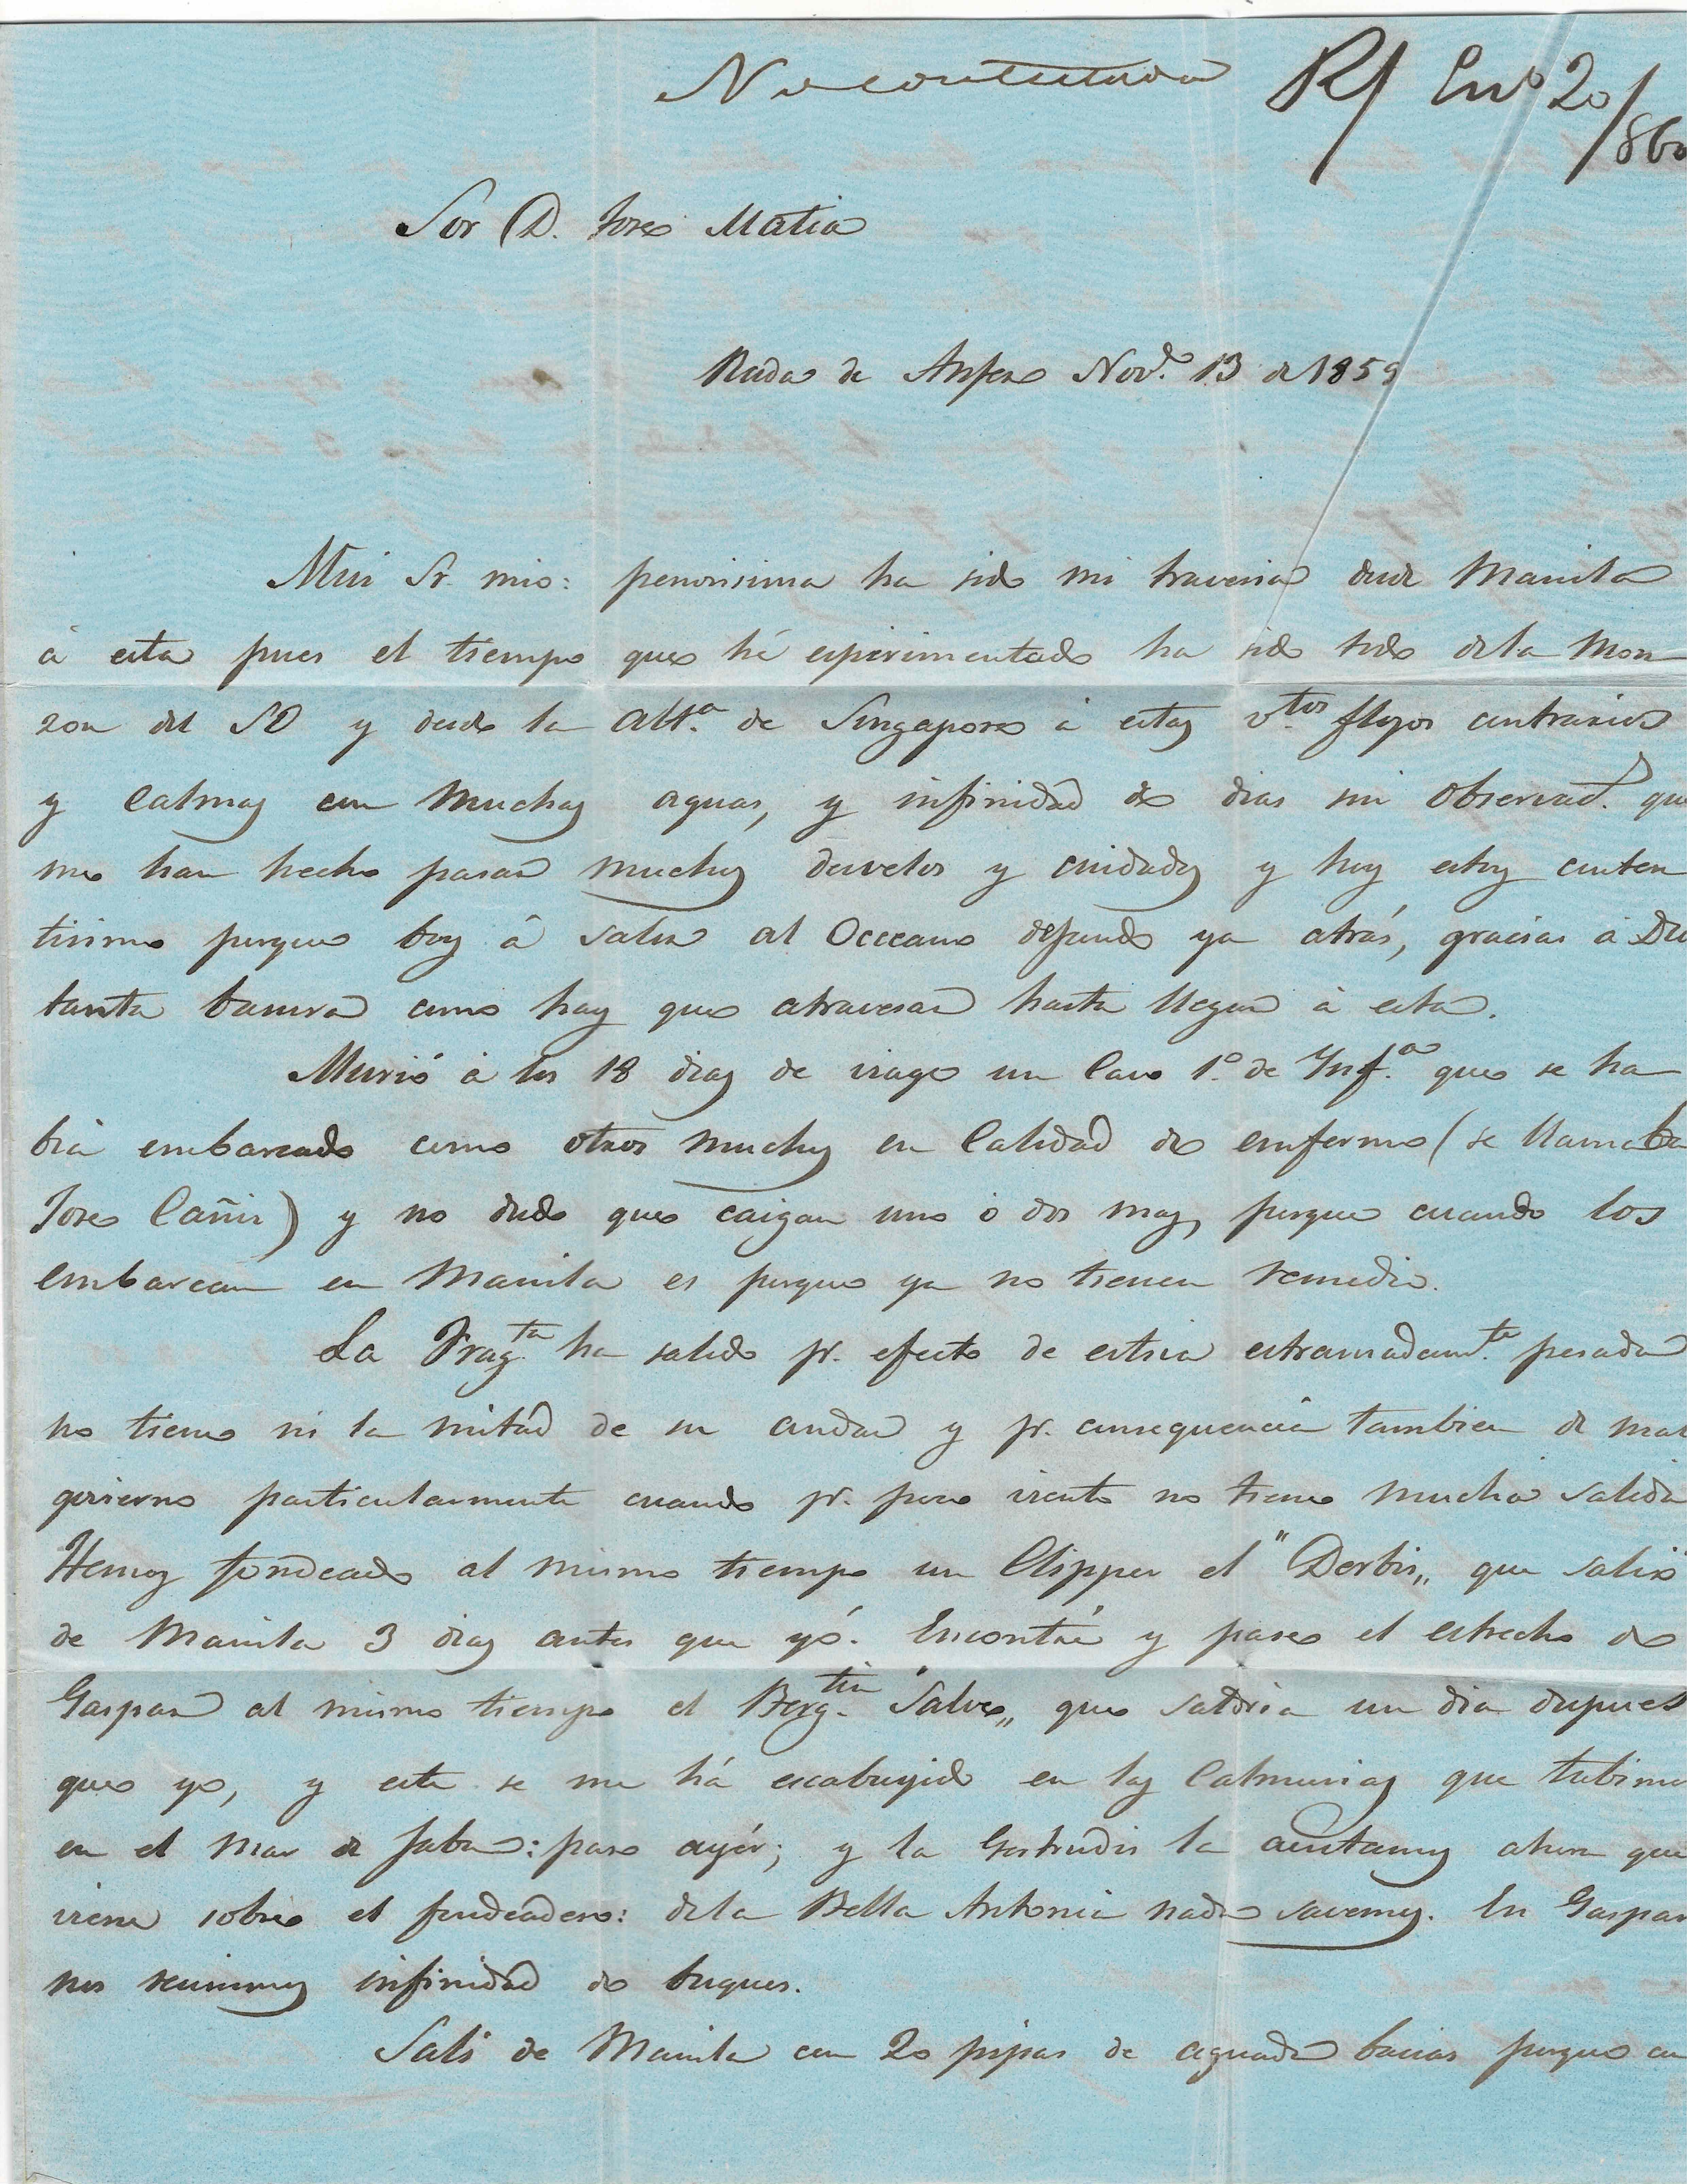 No contestada R/ Enº 20/860
Sor D. Jose Matia
Rada de Anjer Nov.e 13 de 1859
Mui Sr. mio: penosisima ha sido mi travesia desde Manila
á esta pues el tiempo que hé esperimentado ha sido todo de la Mon
zon del SO y desde la Alt.a de Singapore á estas v.tos flojos contrarios
y calmas con muchas aguas, y infinidad de dias sin observac.n que
me han hecho pasar muchos desvelos y cuidados y hoy estoy conten
tisimo porque boy á salir al Occeano dejando ya atrás, gracias á Dios
tanta barura como hay que atravesar hasta llegar á esta.
Murió á los 18 dias de viage un Cavo 1.º de Inf.a que se ha
bia embarcado como otros muchos en calidad de enfermo (se llamaba
Jose Cañis) y no dudo que caigan uno ó dos mas, porque cuando los
embarcan en Manila es porque ya no tienen remedio.
La Frag.ta ha salido pr. efecto de estiva estramadam.te pesada
no tiene ni la mitád de su andar y pr. consequencia tambien de mal
govierno particularmente cuando pr. poco viento no tiene mucha salida
Hemos fondeado al mismo tiempo un Clipper el "Derbis" que salió
de Manila 3 dias antes que yó. Encontré y pase el estrecho de
Gaspar al mismo tiempo el Berg.tin "Salve" que saldria un dia despues
que yo, y este se me há escabuyido en las Calmerias que tubimos
en el Mar de Jaba: paso ayér; y la Gertrudis la abistamos ahora que
viene sobre el fondeadero: de la Bella Antonia nada savemos. En Gaspar
nos reunimos infinidad de buques.
Sali de Manila con 20 pipas de aguada bacias porque con